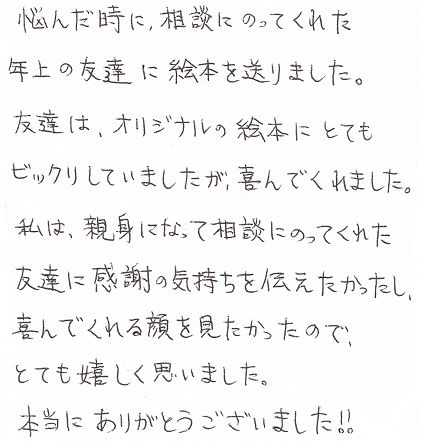 悩んだ時に、相談にのってくれた
年上の友達に絵本を送りました。
友達は、オリジナルの絵本にとても
ビックリしていましたが、喜んでくれました。
私は、親身になって相談にのってくれた
友達に感謝の気持ちを伝えたかったし、
喜んでくれる顔を見たかったので、
とても嬉しく思いました。
本当にありがとうございました!!